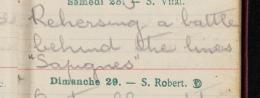 Samedi 28. — S. Vital.
Rehersing a battle
behind the lines
"Sapignes"
Dimanche 29. — S. Robert.